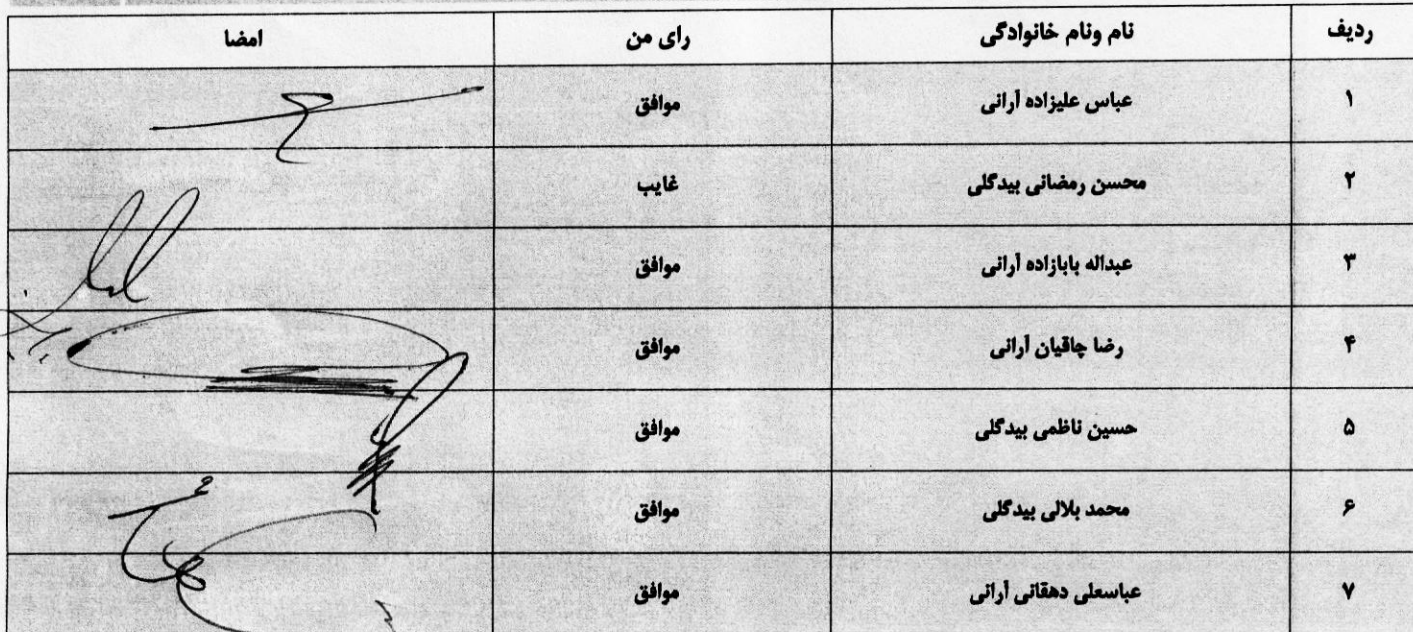 ردیف نام ونام خانوادگی رای من امضا
۱ عباس علیزاده آرانی موافق
۲ محسن رمضانی بیدگلی غایب
۳ عبداله بابازاده آرانی موافق
۴ رضا چاقیان آرانی موافق
۵ حسین ناظمی بیدگلی موافق
۶ محمد بلالی بیدگلی موافق
۷ عباسعلی دهقانی آرانی موافق